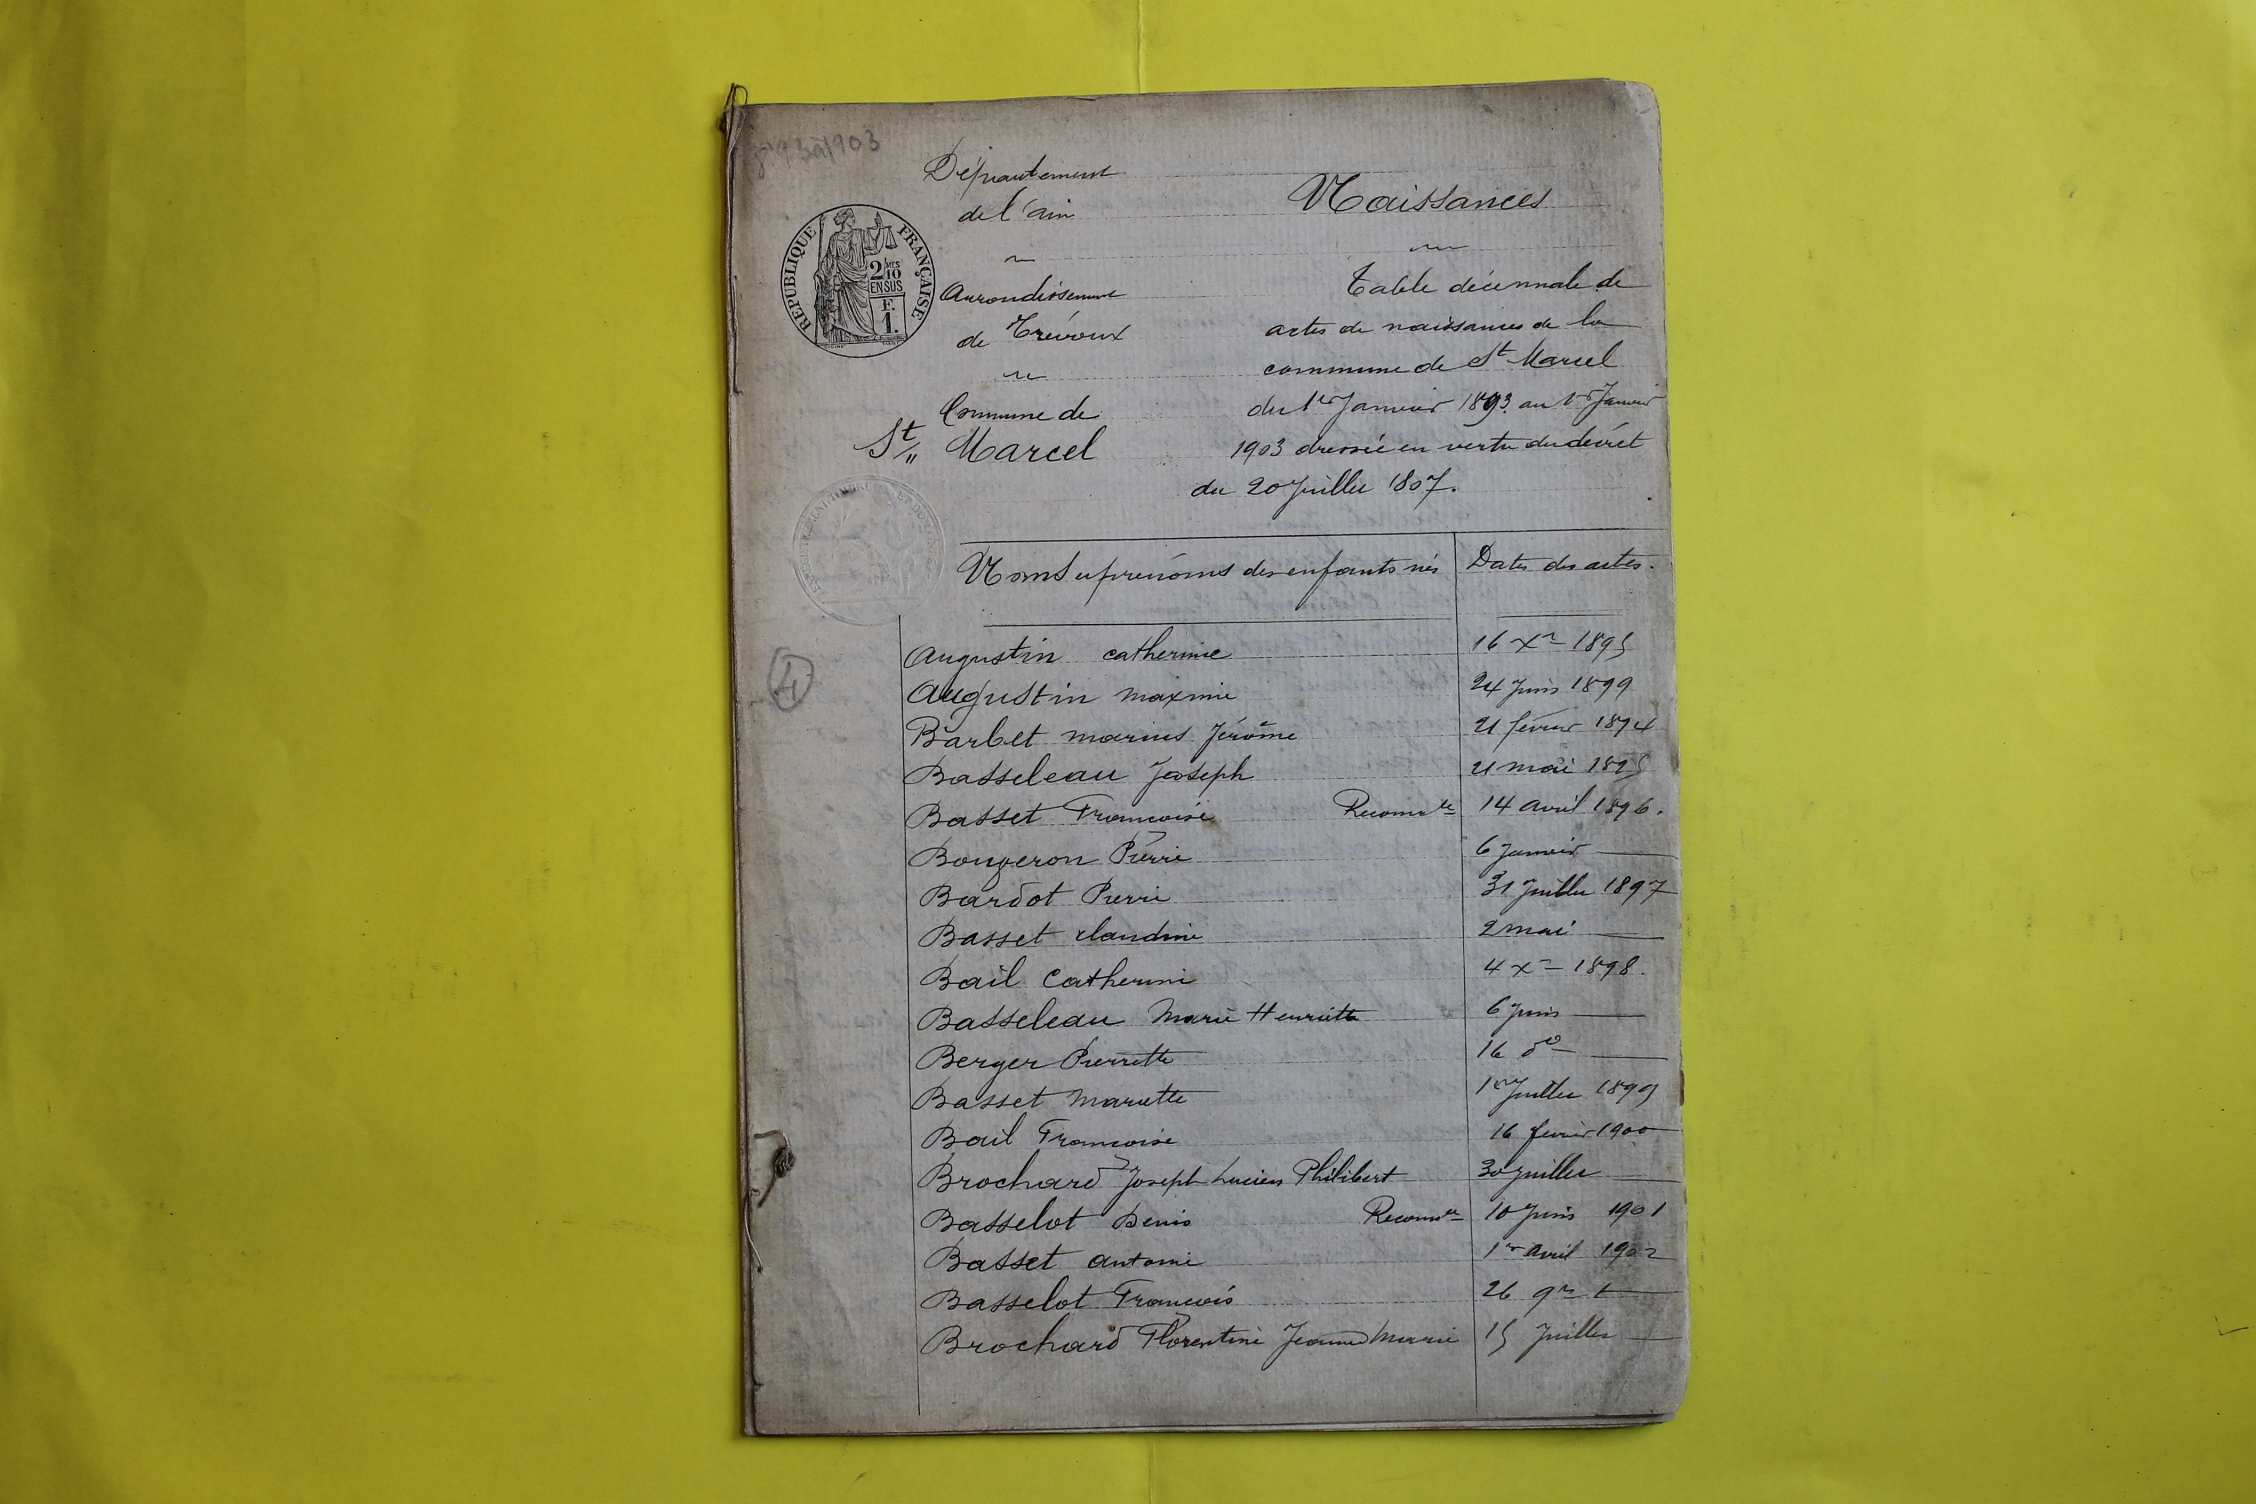 Département
de l'ain
Arrondissement
de Trévoux
Commune de
St Marcel
RÉPUBLIQUE FRANÇAISE
2/10 MES
EN SUS
F.
1.
Naissances
Table décennale de
actes de naissances de la
commune de St Marcel
du 1er Janvier 1893 au 1er Janvier
1903 dressée en vertu du décret
du 20 Juillet 1807.
Noms et prénoms des enfants nés Dates des actes.
Augustin catherine 16 Xre 1895
Augustin maxime 24 Juin 1899
Barbet marius Jérôme 21 février 1894
Basseleau Joseph 21 mai 1895
Basset Francoise Reconnce 14 avril 1896.
Bougeron Pierre 6 Janvier
Bardot Pierre 31 Juillet 1897
Basset claudine 2 mai
Bail Catherine 4 Xre 1898.
Basseleau Marie Henriette 6 Juin
Berger Pierrette 16 do
Basset Mariette 1er Juillet 1899
Bail Francoise 16 février 1900
Brochard Joseph Lucien Philibert 30 Juillet
Basselot Denis Reconnce 10 Juin 1901
Basset antoine 1er avril 1902
Basselot Francois 26 9re
Brochard Florentine Jeanne Marie 15 Juillet